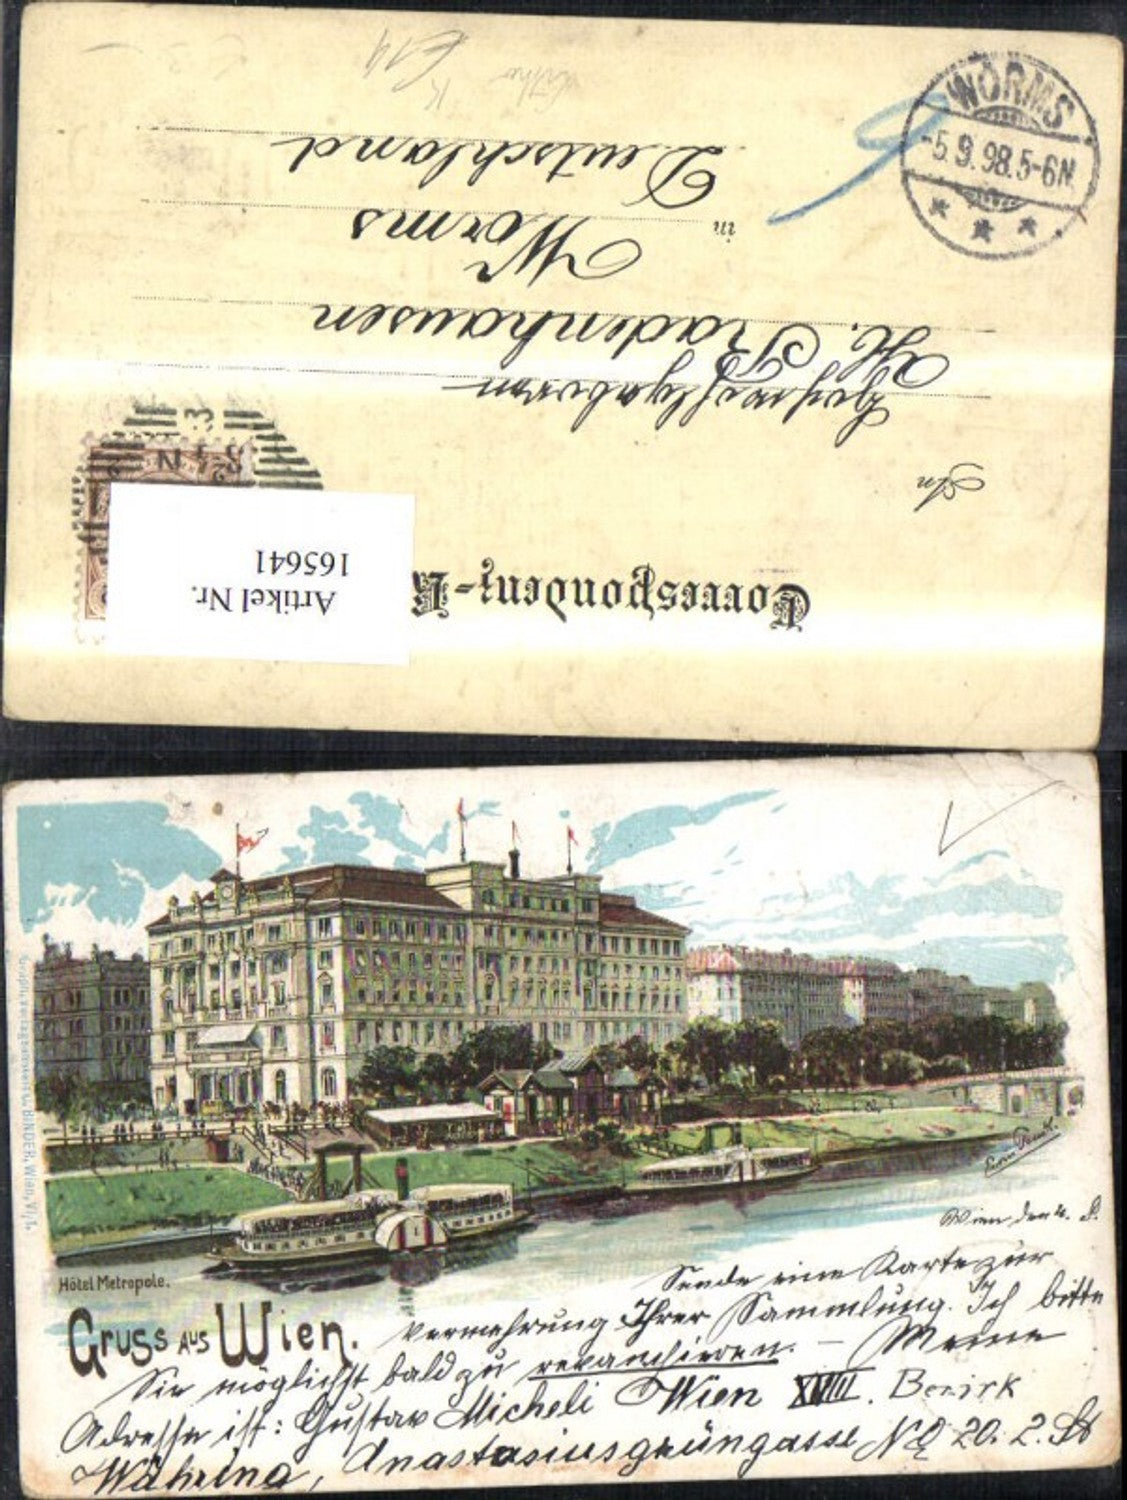 Correspondenz-K
Artikel Nr.
165641
An
Hochwohlgeboren
H. Fradenhausen
Worms
in
Deutschland
K 614
WORMS
-5.9.98.5-6N.
Hôtel Metropole.
Gruss aus Wien.
Wien den 4. 9.
Sende eine Karte zur
vermehrung Ihrer Sammlung. Ich bitte
Sie möglichst bald zu revanchieren. – Meine
Adresse ist: Gustav Micheli Wien XVIII. Bezirk
Währing, Anastasiusgrüngasse No 20. 2. St